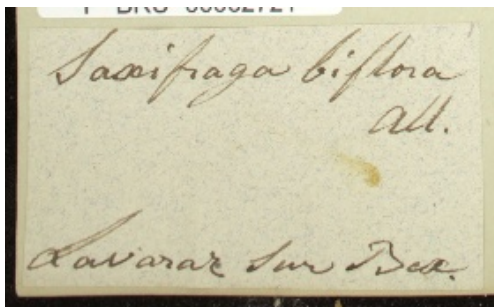 Saxifraga biflora
All.
Lavaraz sur Bex.